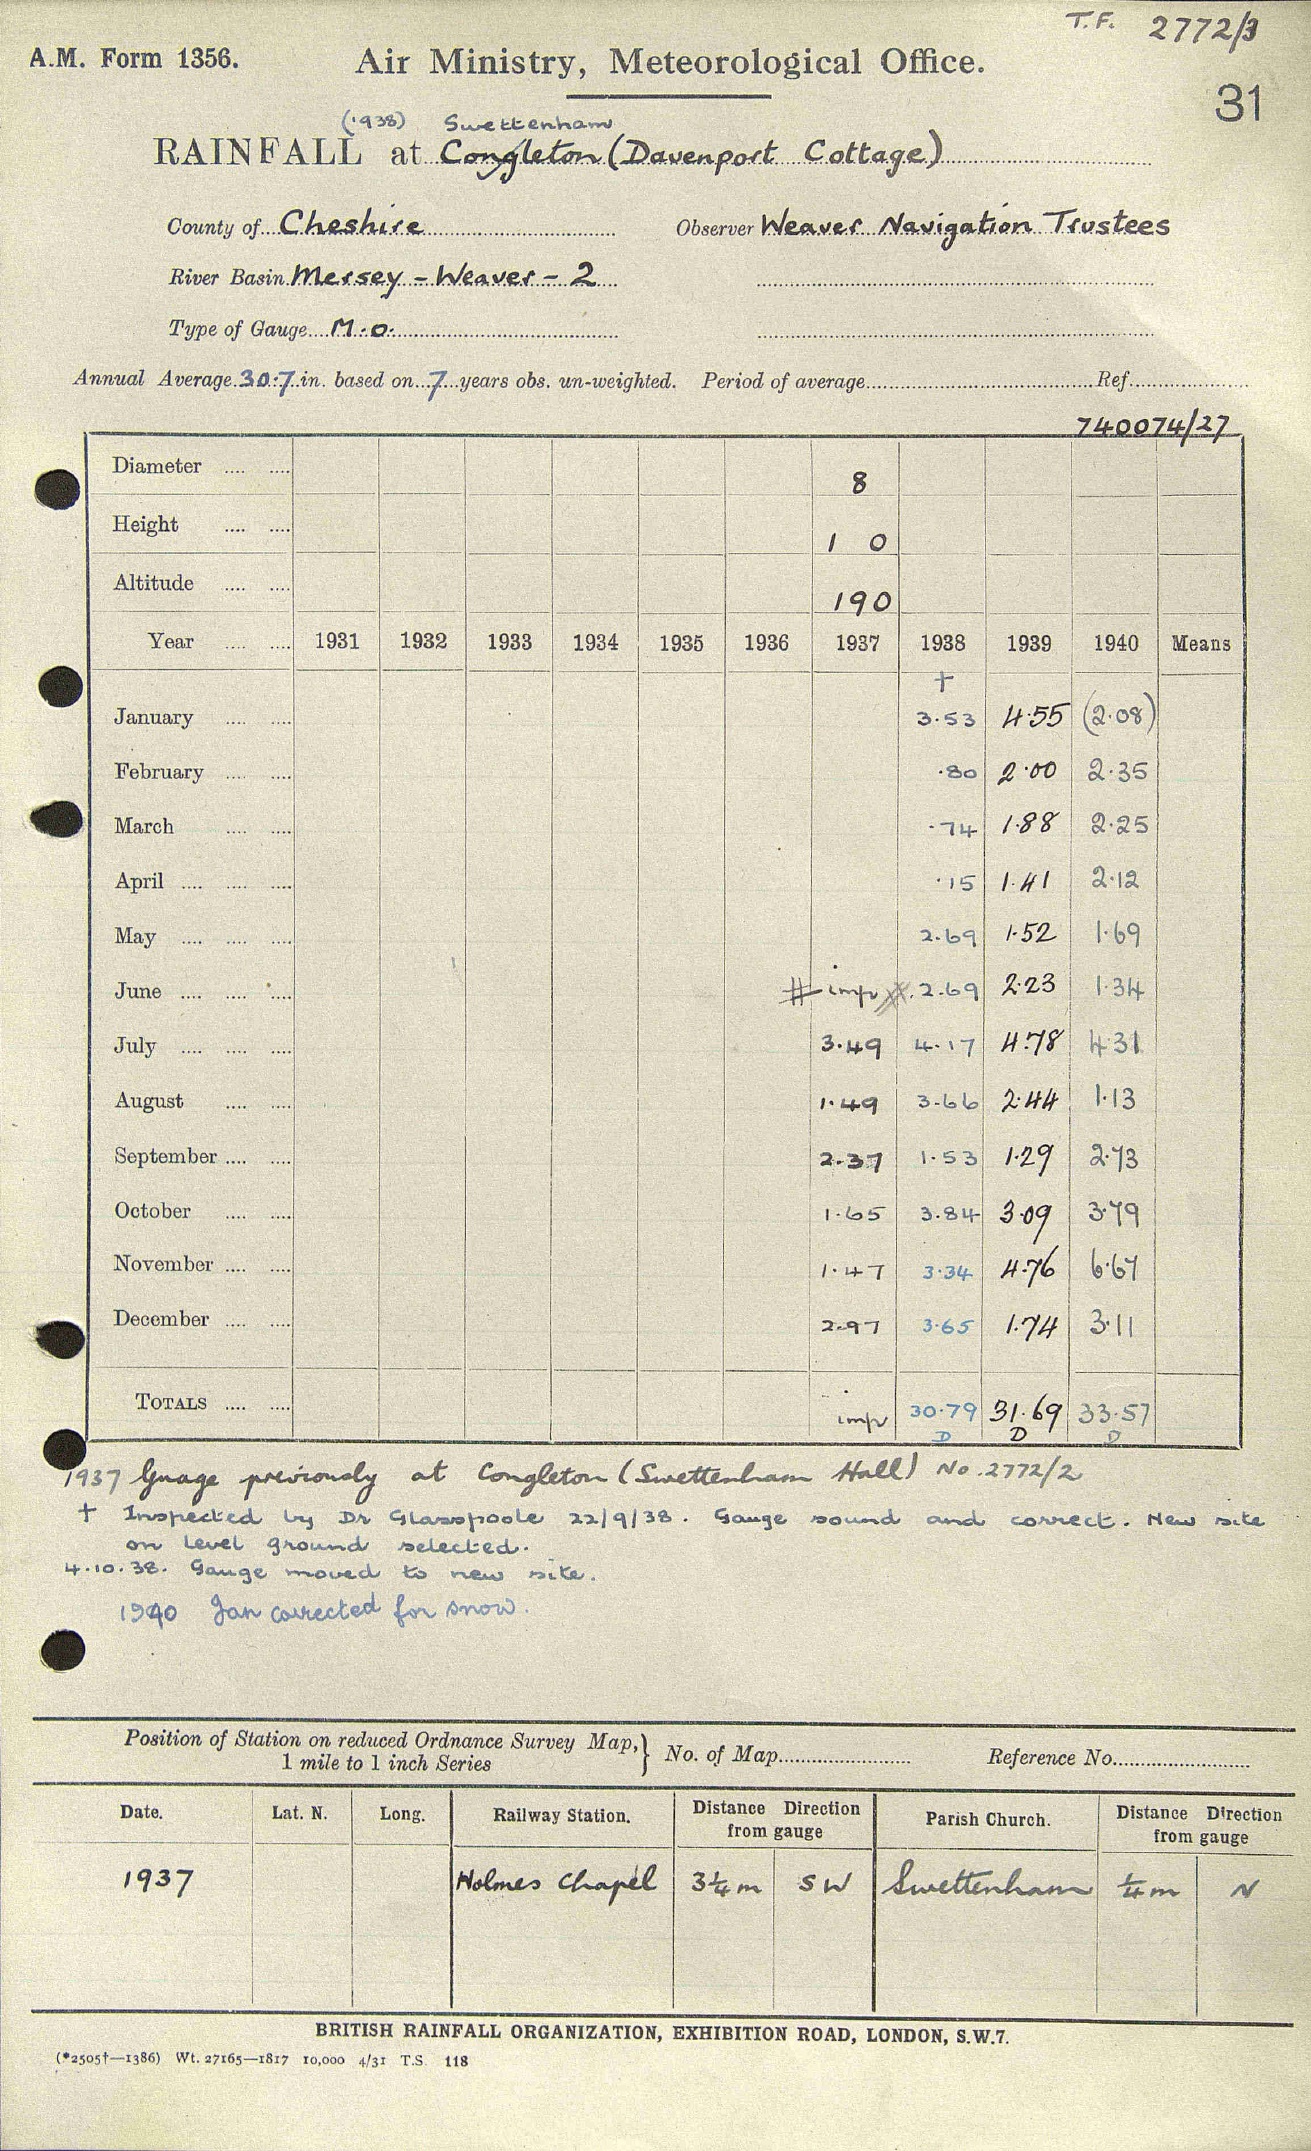 T.F. 2772/3
A.M. Form 1356. Air Ministry, Meteorological Office.
31
(1938) Swettenham
RAINFALL at Congleton (Davenport Cottage)
County of Cheshire Observer Weaver Navigation Trustees
River Basin Mersey - Weaver - 2
Type of Gauge M.O.
Annual Average 30.7 in. based on 7 years obs. un-weighted. Period of average Ref.
740074/27
Diameter 8
Height 1 0
Altitude 190
Year 1931 1932 1933 1934 1935 1936 1937 1938 1939 1940 Means
†
January 3.53 4.55 (2.08)
February .80 2.00 2.35
March .74 1.88 2.25
April .15 1.41 2.12
May 2.69 1.52 1.69
June # imp 2.69 2.23 1.34
July 3.49 4.17 4.78 4.31
August 1.49 3.66 2.44 1.13
September 2.37 1.53 1.29 2.73
October 1.65 3.84 3.09 3.79
November 1.47 3.34 4.76 6.67
December 2.97 3.65 1.74 3.11
TOTALS imp 30.79 31.69 33.57
D D D
1937 Guage previously at Congleton (Swettenham Hall) No. 2772/2
† Inspected by Dr Glasspoole 22/9/38. Gauge sound and correct. New site
on level ground selected.
4.10.38. Gauge moved to new site.
1940 Jan corrected for snow.
Position of Station on reduced Ordnance Survey Map, } No. of Map Reference No.
1 mile to 1 inch Series
Date. Lat. N. Long. Railway Station. Distance Direction from gauge Parish Church. Distance Direction from gauge
1937 Holmes Chapel 3¼ m SW Swettenham ¼ m N
BRITISH RAINFALL ORGANIZATION, EXHIBITION ROAD, LONDON, S.W.7.
(*2505†—1386) Wt. 27165—1817 10,000 4/31 T.S. 118